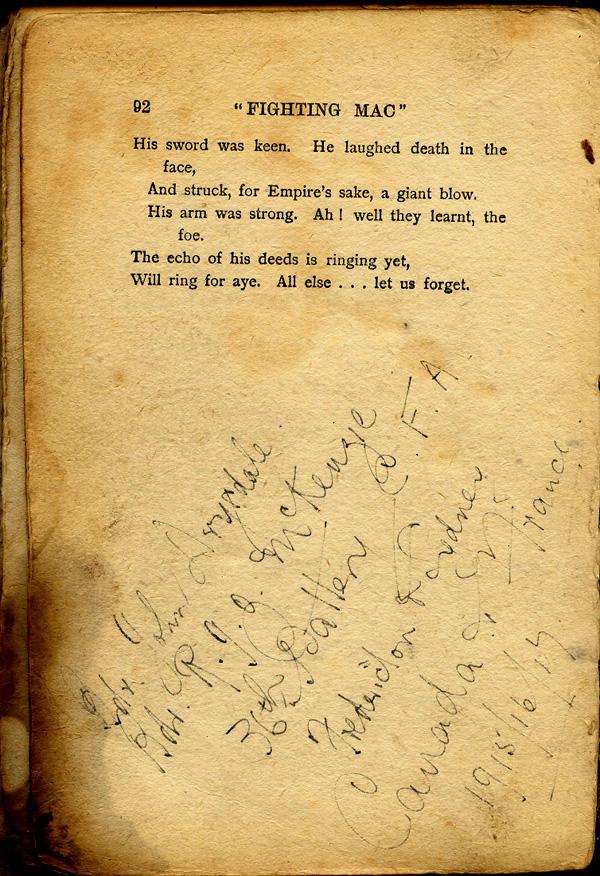 92 "FIGHTING MAC"
His sword was keen. He laughed death in the
face,
And struck, for Empire's sake, a giant blow.
His arm was strong. Ah! well they learnt, the
foe.
The echo of his deeds is ringing yet,
Will ring for aye. All else . . . let us forget.
Gdr. Drysdale.
Bdr. R. J. J. McKenzie
36th Battery C. F. A.
Fredricton & Sydney
Canada &
France.
1915/16/17